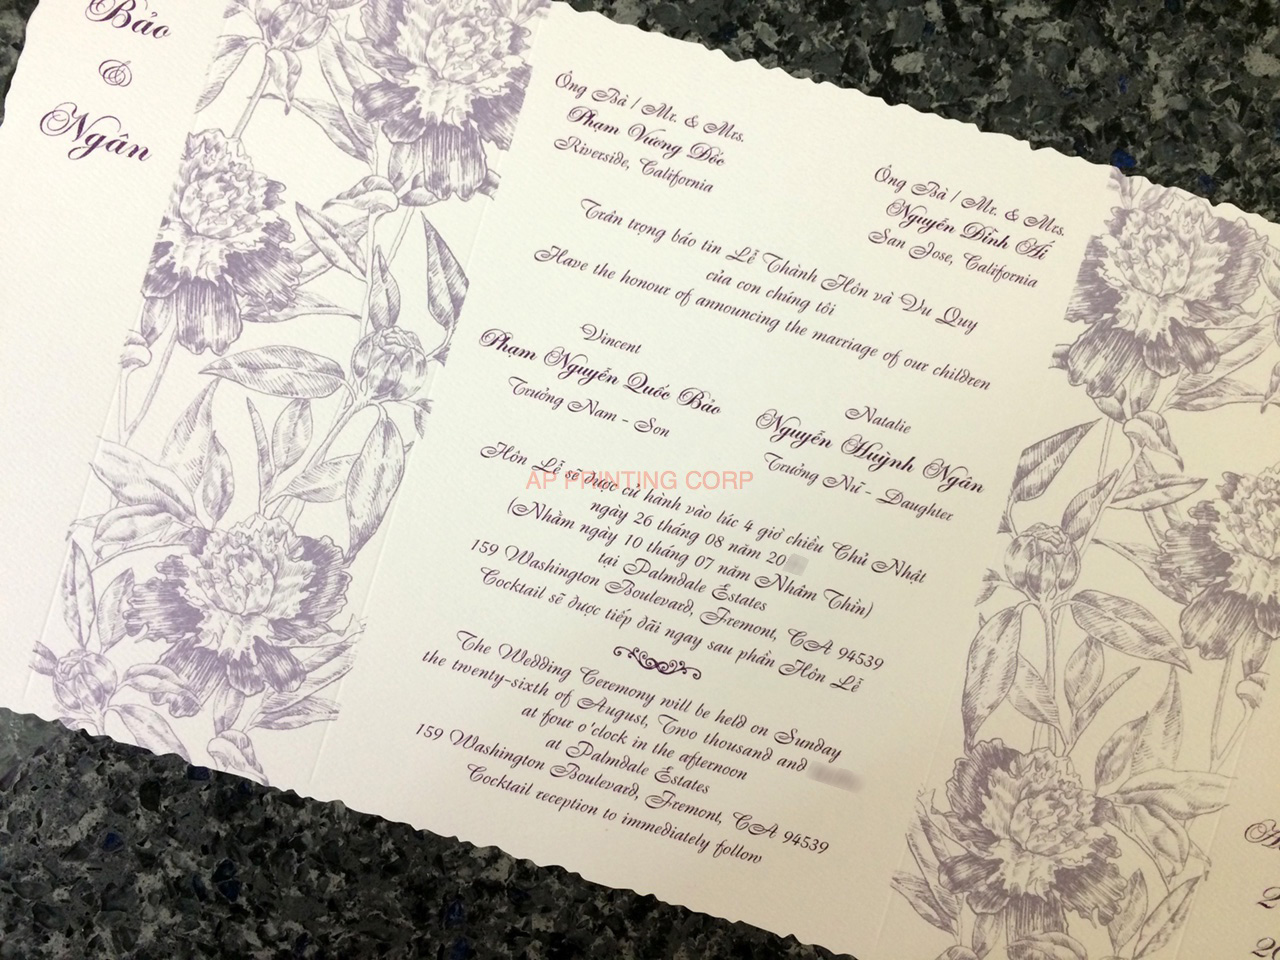 Bảo
&
Ngân
Ông Bà / Mr. & Mrs.
Phạm Vương Dốc
Riverside, California
Ông Bà / Mr. & Mrs.
Nguyễn Đình Ái
San Jose, California
Trân trọng báo tin Lễ Thành Hôn và Vu Quy
của con chúng tôi
Have the honour of announcing the marriage of our children
Vincent
Phạm Nguyễn Quốc Bảo
Trưởng Nam - Son
Natalie
Nguyễn Huỳnh Ngân
Trưởng Nữ - Daughter
Hôn Lễ sẽ được cử hành vào lúc 4 giờ chiều Chủ Nhật
ngày 26 tháng 08 năm 20
(Nhằm ngày 10 tháng 07 năm Nhâm Thìn)
tại Palmdale Estates
159 Washington Boulevard, Fremont, CA 94539
Cocktail sẽ được tiếp đãi ngay sau phần Hôn Lễ
The Wedding Ceremony will be held on Sunday
the twenty-sixth of August, Two thousand and
at four o'clock in the afternoon
at Palmdale Estates
159 Washington Boulevard, Fremont, CA 94539
Cocktail reception to immediately follow
AP PRINTING CORP